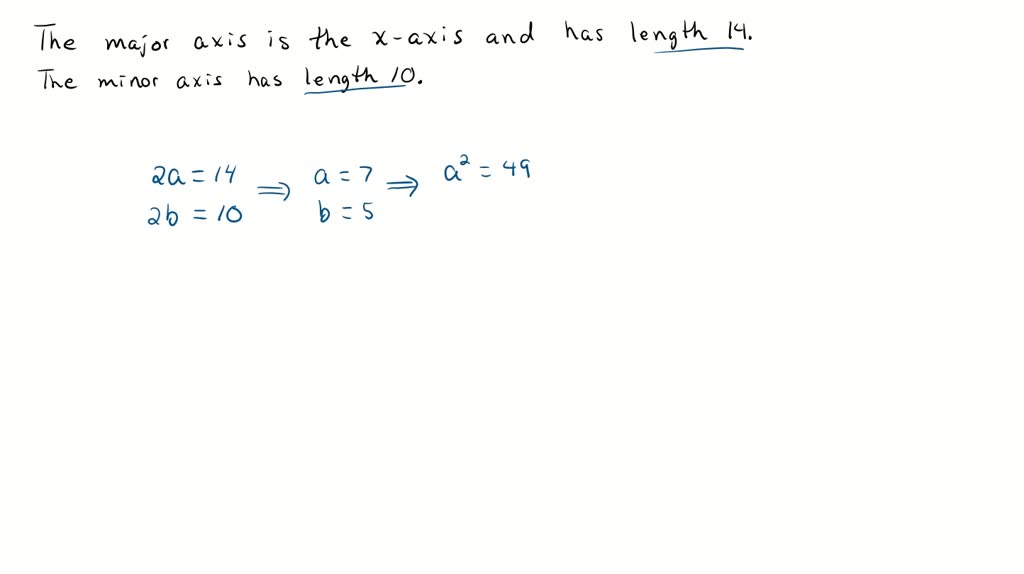 The major axis is the x-axis and has length 14.
The minor axis has length 10.
2a = 14 ⟹ a = 7 ⟹ a² = 49
2b = 10 b = 5